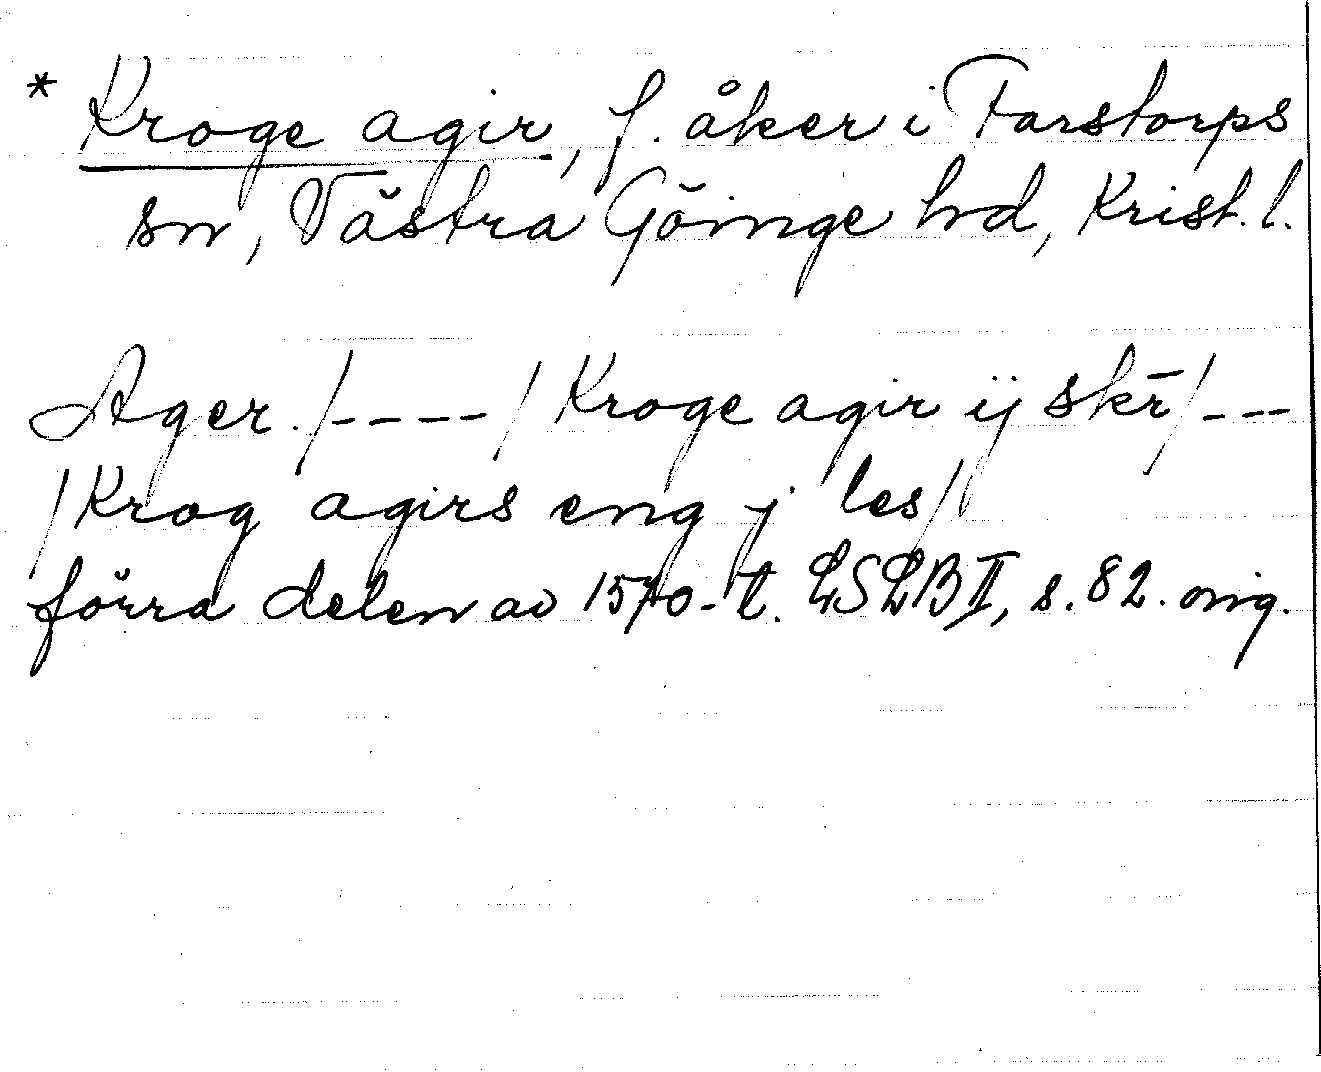 * Kroge agir, f. åker i Farstorps
sn, Västra Göinge hd, Krist. l.
Ager. /----/ Kroge agir ij skr̄/---
/Krog agirs eng j les/
förra delen av 1570-t. LSLB II, s. 82. orig.